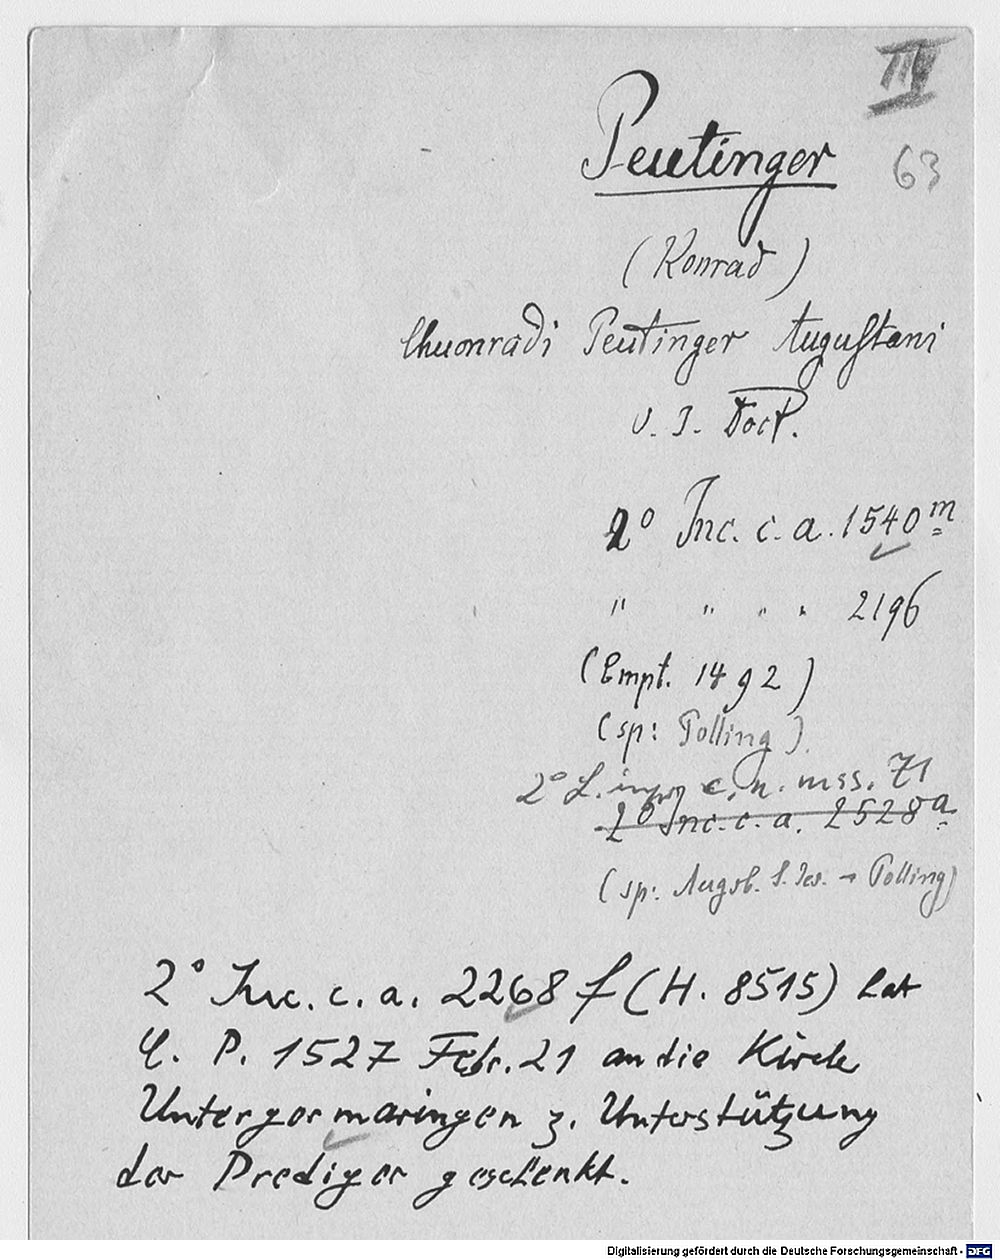 III
Peutinger
63
(Konrad)
Chuonradi Peutinger Augustani
V. I. Doct.
2° Inc. c. a. 1540 m
" " " " 2196
(Empt. 1492)
(sp: Polling).
2° L. impr. c. n. mss. 71
2° Inc. c. a. 2528 a
(sp: Augsb. S. Jes. → Polling)
2° Inc. c. a. 2268 f (H. 8515) hat
C. P. 1527 Febr. 21 an die Kirche
Untergermaringen z. Unterstützung
der Prediger geschenkt.
Digitalisierung gefördert durch die Deutsche Forschungsgemeinschaft - DFG